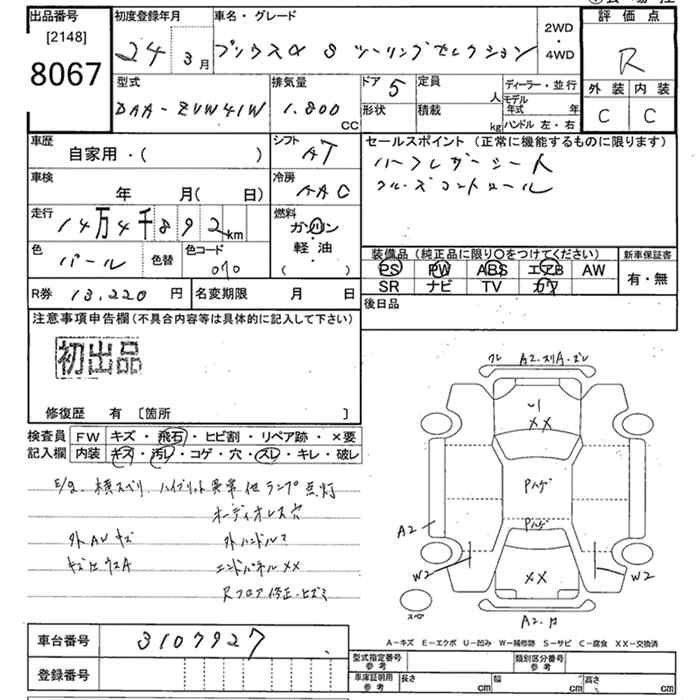 出品番号 初度登録年月 車名・グレード 2WD・4WD 評価点
[2148]
8067 24 3月 プリウスα S ツーリングセレクション R
型式 排気量 ドア 5 定員 人 ディーラー・並行 外装 内装
DAA-ZVW41W 1.800 CC 形状 積載 kg モデル年式 年 C C
ハンドル 左・右
車歴 自家用・( ) シフト AT セールスポイント (正常に機能するものに限ります)
ハーフレザーシート
車検 年 月( 日) 冷房 AAC クルーズコントロール
走行 14万4千892km 燃料 ガソリン
軽・油
( )
色 パール 色替 色コード 070
装備品 (純正品に限り○をつけてください) 新車保証書
PS PW ABS エアB AW 有・無
SR ナビ TV カワ
R券 13.220 円 名変期限 月 日 後日品
注意事項申告欄(不具合内容等は具体的に記入して下さい)
初出品
修復歴 有 [箇所 ]
検査員 FW キズ・飛石・ヒビ割・リペア跡・×要
記入欄 内装 キズ・汚レ・コゲ・穴・スレ・キレ・破レ
E/g. 横スベリ. ハイブリット異常他ランプ点灯
オーディオレス穴
外AWキズ 外ハンドル
エンドパネルXX
Rフロア修正・ヒズミ
ワレ A2.スリA.ズレ
XX
Pハゲ
Pハゲ
A2
W2 XX W2
スペア
A2.
A-キズ E-エクボ U-凹み W-補修跡 S-サビ C-腐食 XX-交換済
車台番号 3107927
型式指定番号 参考 類別区分番号 参考
登録番号
車庫証明用 参考 長さ cm 幅 cm 高さ cm